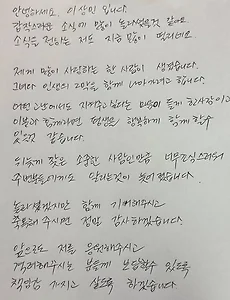 안녕하세요, 이상민 입니다
갑작스러운 소식에 많이 놀라셨을것 같아요
소식을 전하는 저도 지금 많이 떨리네요
제게 많이 사랑하는 한 사람이 생겼습니다.
그녀와 인생의 2막을 함께 나아가려고 합니다.
어떤 고난에서도 지켜주고 싶다는 마음이 들게 한 사람이고
이분과 함께라면 평생을 행복하게 함께 할수
있을것 같습니다.
뒤늦게 찾은 소중한 사람인만큼 너무 조심스러워
주변분들에게도 알리는것이 늦어졌습니다.
놀라셨겠지만 함께 기뻐해주시고
축복해 주시면 정말 감사하겠습니다
앞으로도 저를 응원해주시고
격려해주시는 분들께 보답할수 있도록
책임감 가지고 살도록 하겠습니다.